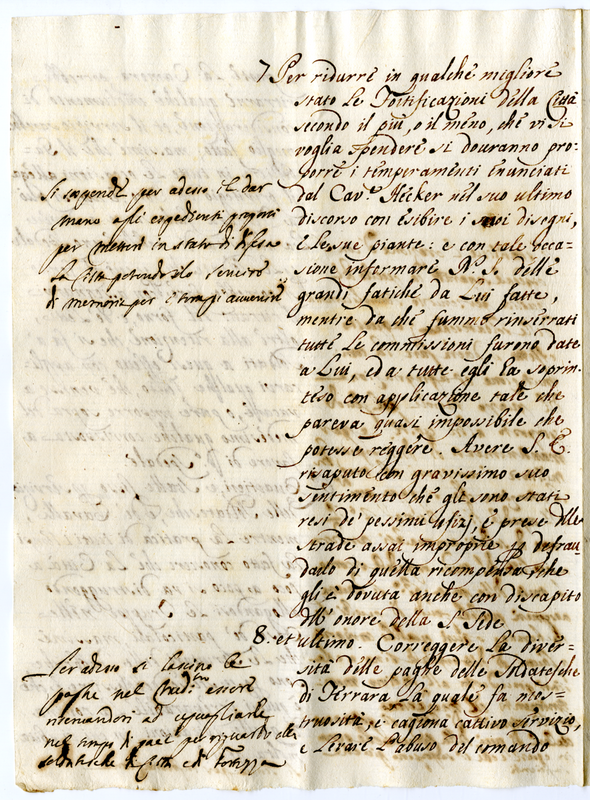 7 Per ridurre in qualche migliore
stato le Fortificazioni della Città
secondo il più, o il meno, che vi si
voglia spendere si douranno pro=
porre i temperamenti enunciati
dal Cav.e Hecker nel suo ultimo
discorso con esibire i suoi disegni,
e le sue piante: e con tale occa=
sione informare N.o S.e delle
grandi fatiche da Lui fatte,
mentre da che fummo rinserrati
tutte le commissioni furono date
a Lui, ed a tutte egli ha soprin=
teso con applicazione tale che
pareva quasi impossibile che
potesse reggere. Avere S. E.
risaputo con gravissimo suo
sentimento che gli sono stati
resi de' pessimi ufizj, e prese delle
strade assai improprie p defrau
darlo di quella ricompensa, che
gli è dovuta anche con discapito
dell' onore della S. Sede
8. et ultimo. Correggere la diver=
sità delle paghe delle Soldatesche
di Ferrara la quale fa mos=
truosità, e cagiona cattivo servizio,
e levare l'abuso del comando
Si sospende per adesso il dar
mano agli espedienti proposti
per mettere in stato di difesa
la Città potendo servire
di memoria per i tempi auuenire
Per adesso si lascino le
paghe nel essere
riservandosi ad uguagliarle
nel tempo di pace per riguardo alle
soldatesche di Città e di Fortezza